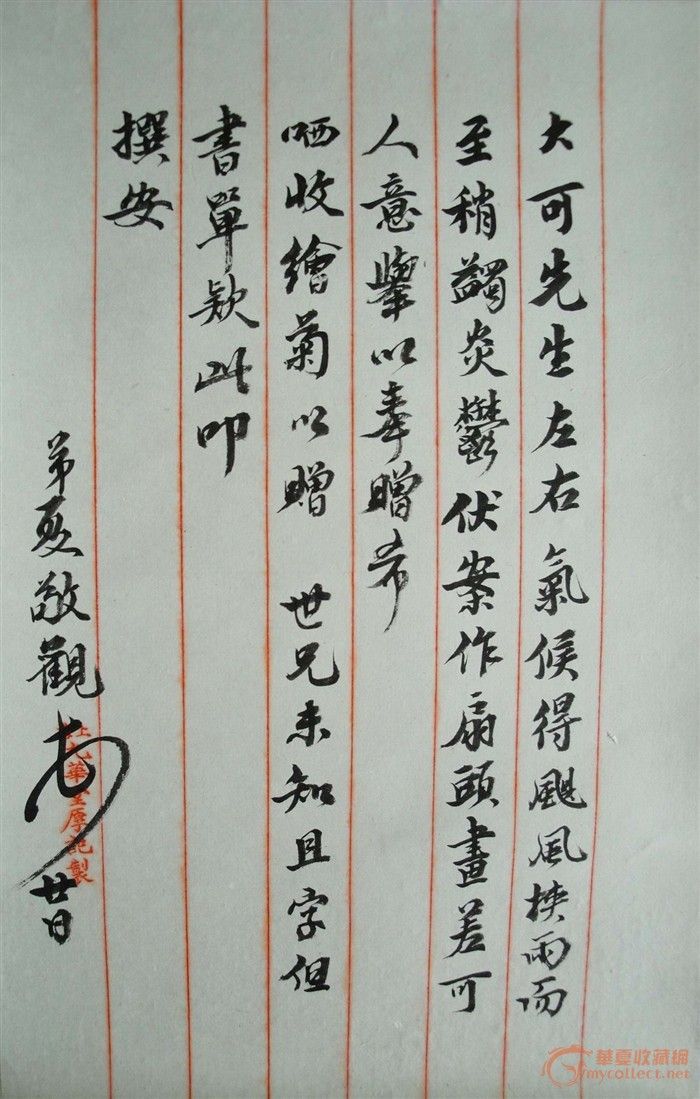 大可先生左右氣候得颶風挾雨而
至稍蠲炎鬱伏案作扇頭畫差可
人意舉以奉贈希
哂收繪菊以贈 世兄未知且字但
書單款此叩
撰安
弟夏敬觀
廿日
華堂厚記製
華夏收藏網
mycollect.net